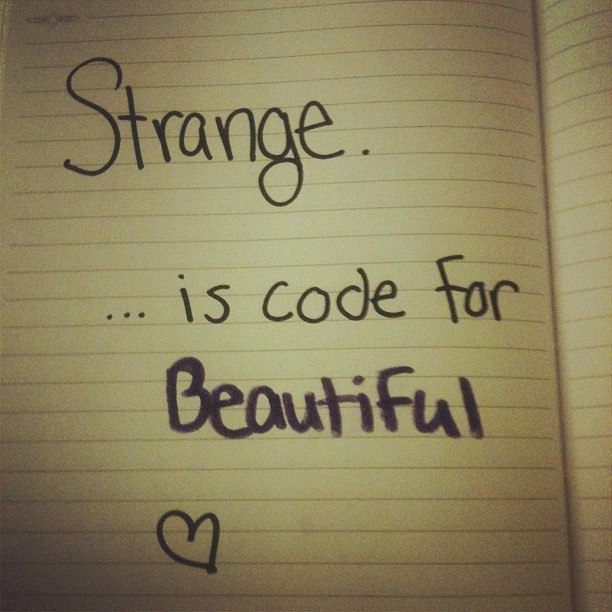 Strange.
... is code for
Beautiful